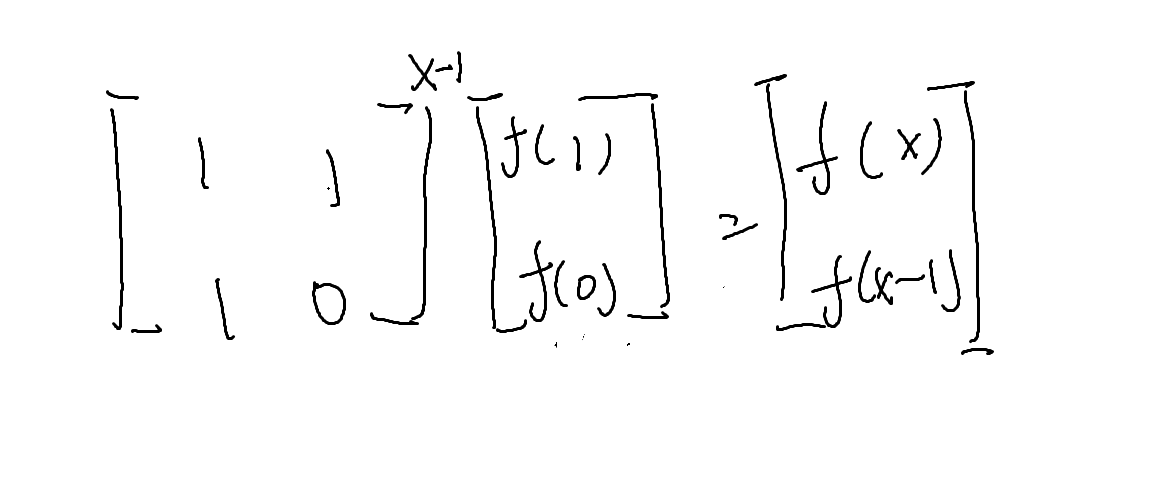 [1 1; 1 0]^{x-1} [f(1); f(0)] = [f(x); f(x-1)]